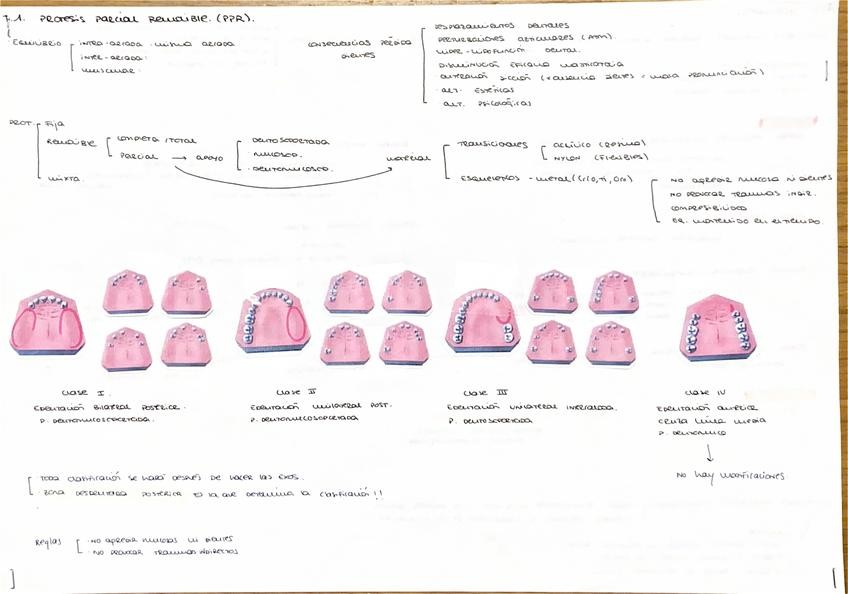 7.1. PROTESIS PARCIAL REMOVIBLE. (PPR).
EQUILIBRIO
INTRA-ARCADA: MISMA ARCADA
INTER-ARCADA:
MUSCULAR:
CONSECUENCIAS PÉRDIDA DIENTES
DESPLAZAMIENTOS DENTALES
PERTURBACIONES ARTICULARES (ATM)
HIPER-HIPOFUNCIÓN DENTAL.
DISMINUCIÓN EFICACIA MASTICATORIA
ALTERACIÓN DICCIÓN (+ AUSENCIA DIENTES = MALA PRONUNCIACIÓN)
· ALT. ESTÉTICAS
ALT. PSICOLÓGICAS
PROT.
Fija
REMOVIBLE
COMPLETA / TOTAL
PARCIAL → APOYO
DENTOSOPORTADA
· MUCOSOP.
· DENTOMUCOSOP.
MIXTA.
MATERIAL
TRANSICIONALES
ACRÍLICO (RESINA)
NYLON (FLEXIBLES)
ESQUELETICOS - METAL (CrCo, Ti, Oro)
NO APRETAR MUCOSA NI DIENTES
NO PROVOCAR TRAUMAS INDIR.
COMPRESIBILIDAD
EQ. MANTENIDO EN EL TIEMPO.
Clase I.
EDENTACIÓN BILATERAL POSTERIOR.
P. DENTOMUCOSOPORTADA.
Clase II
EDENTACIÓN UNILATERAL POST.
P. DENTOMUCOSOPORTADA.
Clase III
EDENTACIÓN UNILATERAL INTERCALADA.
P. DENTOSOPORTADA
Clase IV
EDENTACIÓN ANTERIOR
CRUZA LINEA MEDIA
P. DENTOMUCO
↓
No hay modificaciones
· TODA clasificación SE HARÁ DESPUÉS DE HACER LAS EXOS.
· ZONA DESDENTADA POSTERIOR ES LA QUE DETERMINA LA Clasificación!!
Reglas
· NO APRETAR MUCOSAS NI DIENTES
· NO PROVOCAR TRAUMAS INDIRECTOS